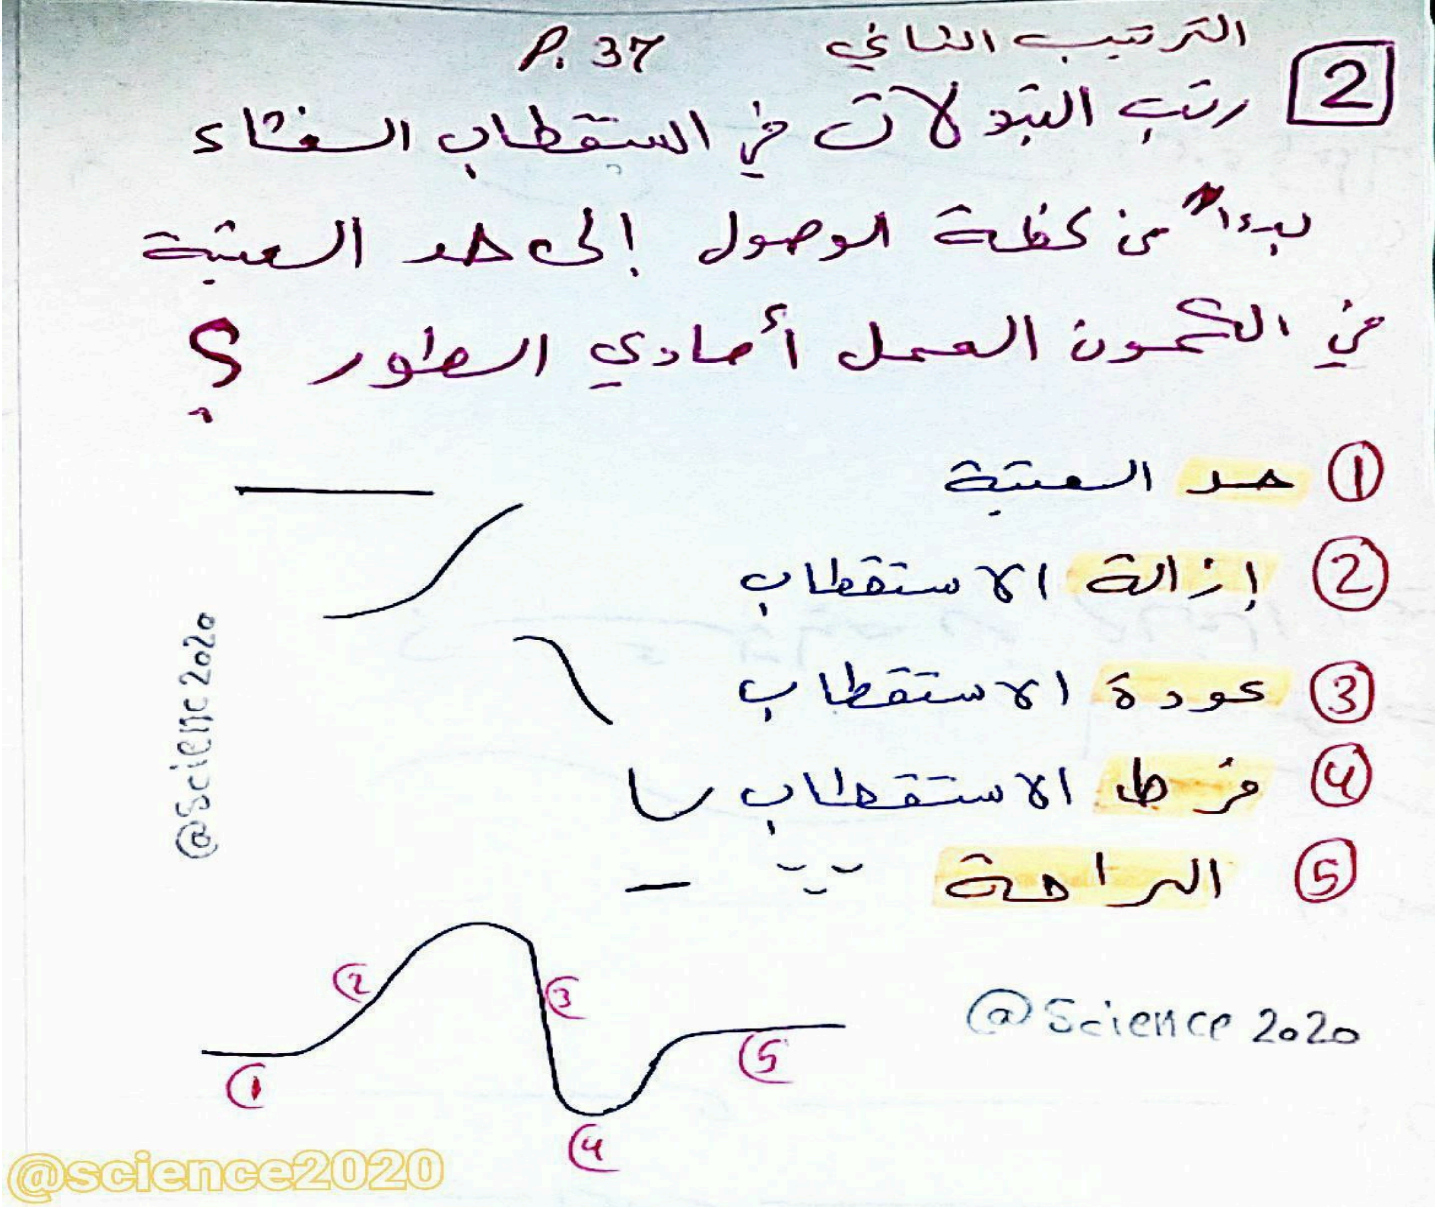 الترتيب الثاني P. 37
2 رتب التبدلات في استقطاب الغشاء
بدءاً من لحظة الوصول إلى حد العتبة
في الكمون العمل أحادي الطور ؟
① حد العتبة
② إزالة الاستقطاب
③ عودة الاستقطاب
④ فرط الاستقطاب
⑤ الراحة
@Science2020
② ③
① ⑤
④
@Science 2020
@science2020